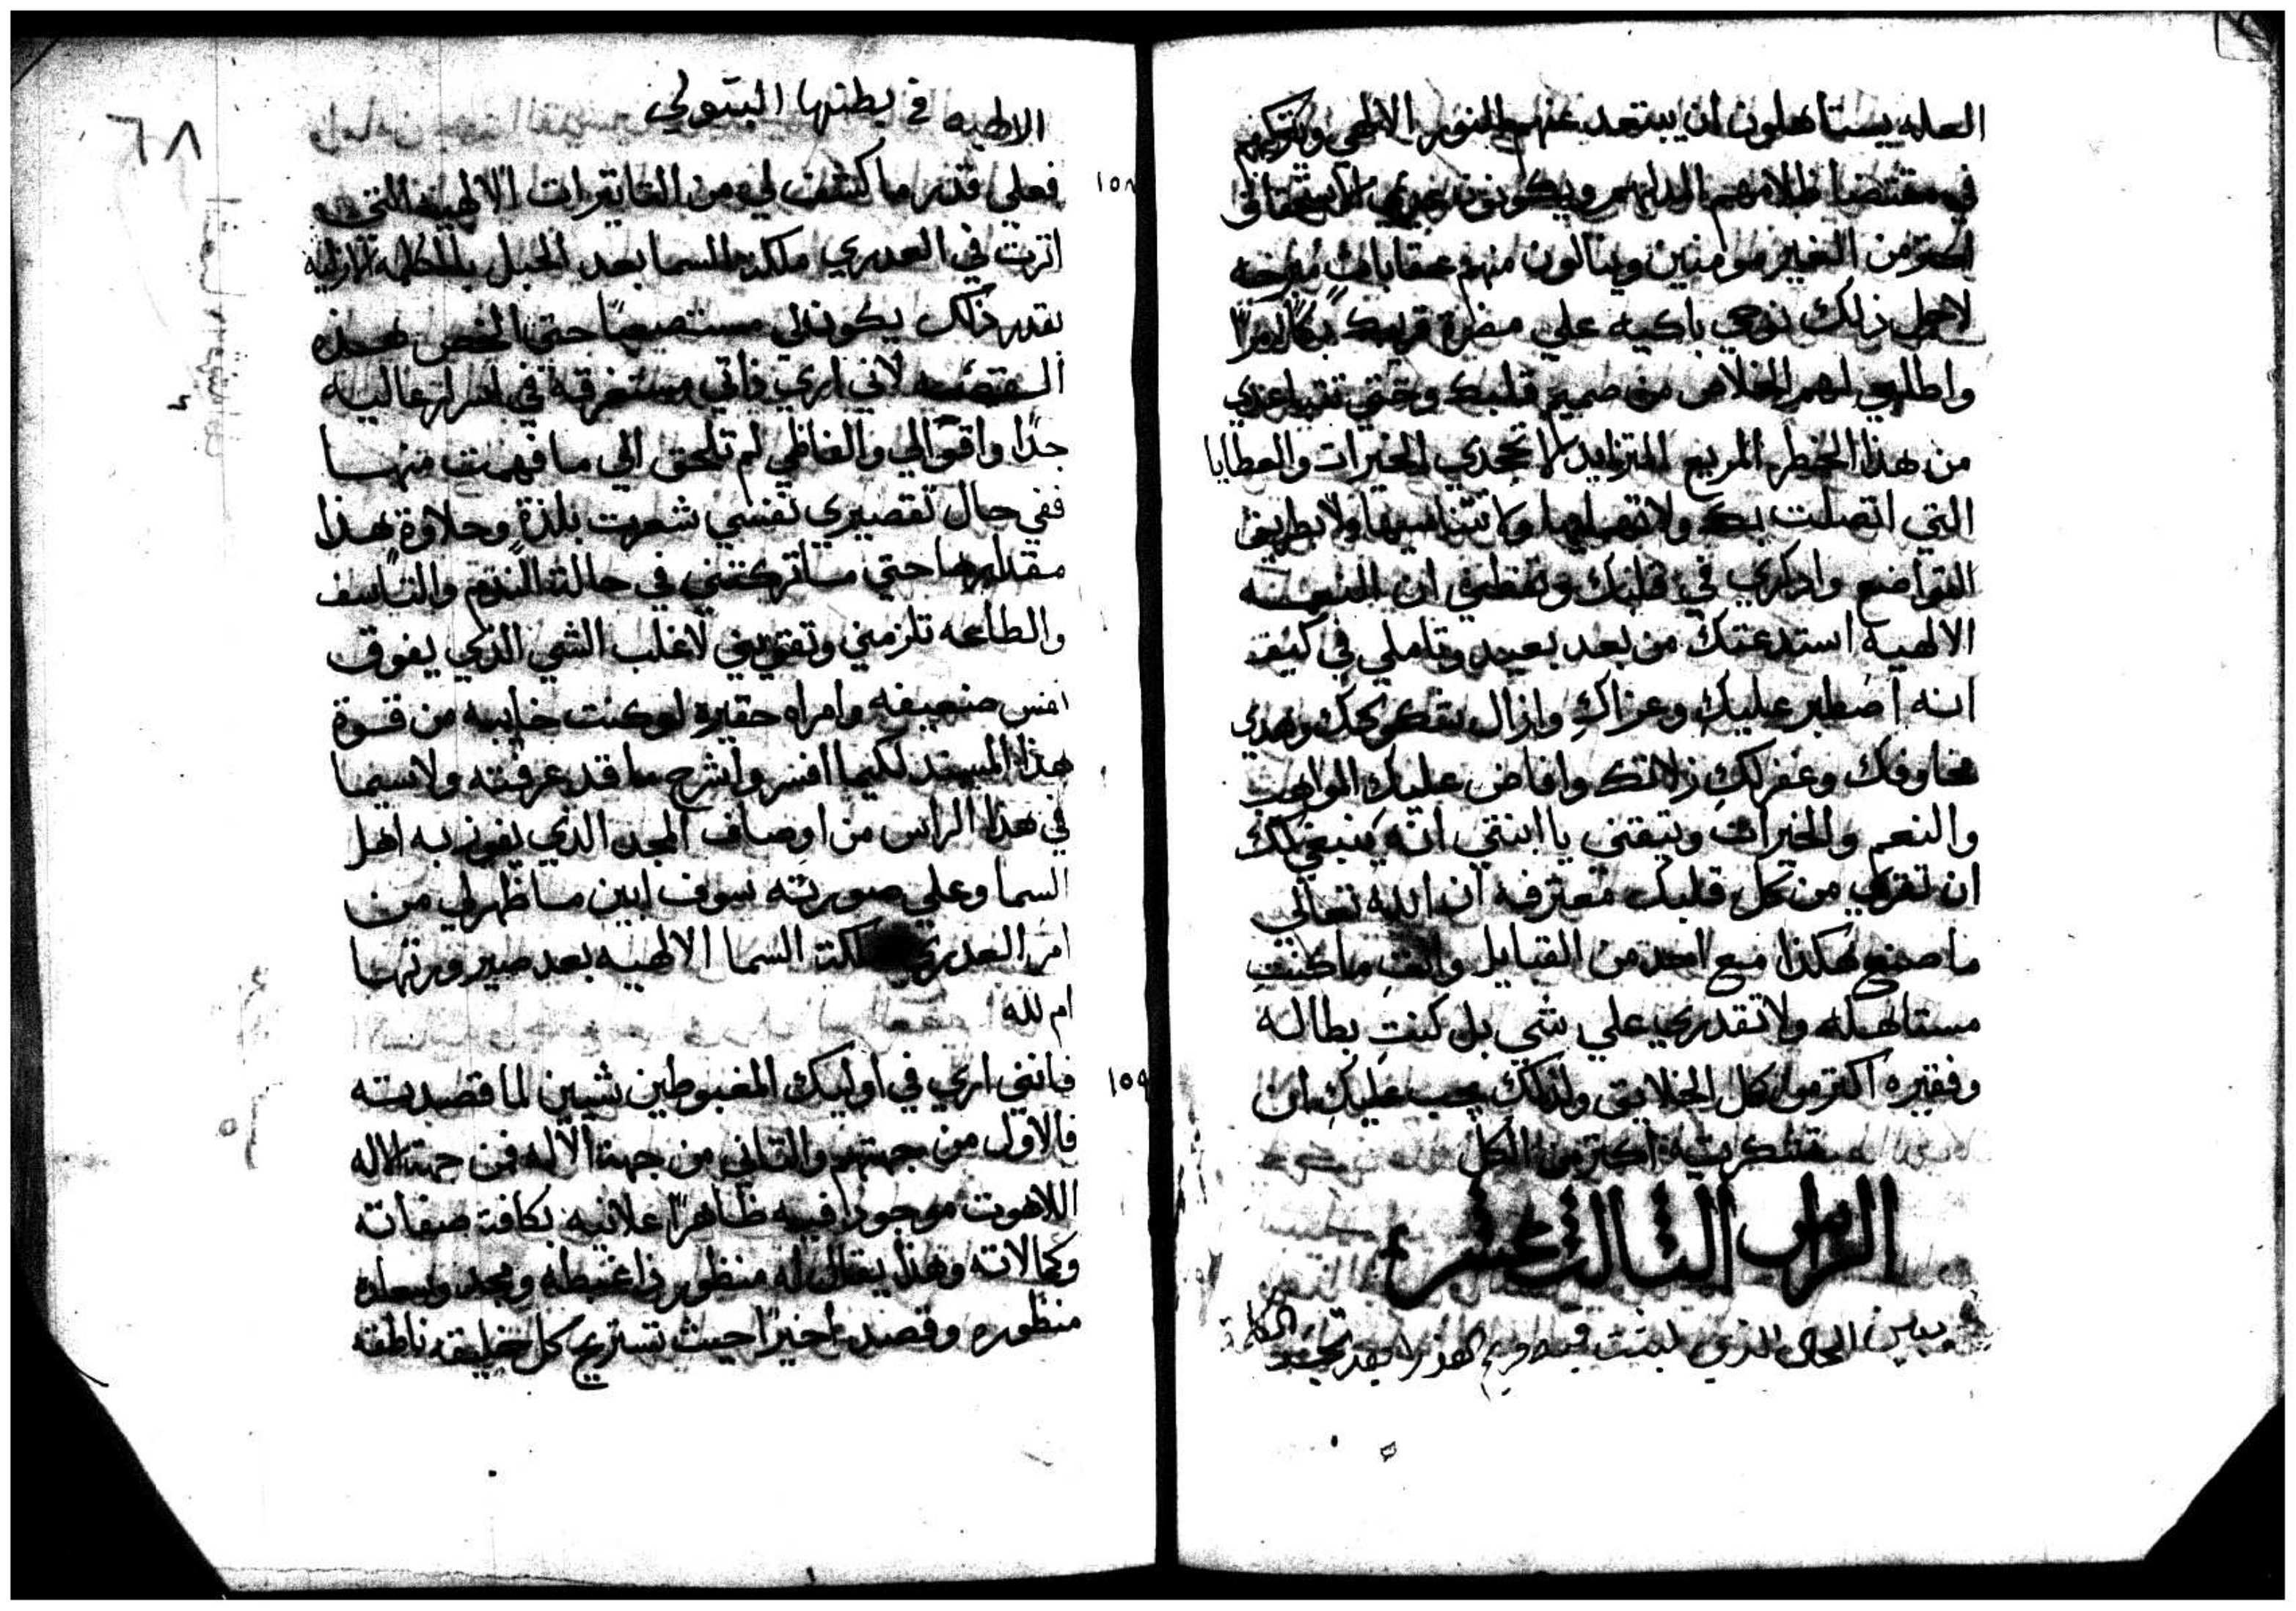 العله يستاهلون ان يبتعد عنهم النور الالهي ويتركهم
في مقتضا ظلامهم المدلهم ويكونون
اكتر من الغير مومنين وينالون منهم عقابات
لاجل ذلك نوحي باكيه علي مضرة قريبك
واطلبي لهم الخلاص من صميم قلبك وحتي تتباعدي
من هذا الخطر المريع المتزايد لا تجحدي الخيرات والعطايا
التي اتصلت بك ولا تهمليها ولا تتناسيها ولا بطريق
التواضع واذكري في قلبك ان النعمه
الالهيه استدعتك من بعد بعيد وتاملي في كيف
انه اصطبر عليك وعزاك وازال
مخاوفك وغفر لك زلاتك وافاض عليك المواهب
والنعم والخيرات وتيقني يا ابنتي انه ينبغي لك
ان تقري من كل قلبك معترفه ان الله تعالي
ما صنع هكذا مع احد من القبايل وانتِ ما كنتِ
مستاهله ولا تقدري علي شي بل كنتِ بطاله
وفقيره اكتر من كل الخلايق ولذلك يجب عليكِ ان
تشكريه اكتر من الكل
الراس التالت عشر
يبين الحال الذي لبثت فيه مريم العذرا بعد تجسد الكلمة
الالهيه في بطنها البتولي
١٥٨ فعلي قدر ما كشفت لي من التاتيرات الالهيه التي
اترت في العدري ملكة السما بعد الحبل بالكلمه الازليه
بقدر ذلك يكون لي مستصعبًا حتي الخص هذه
القصه لاني اري ذاتي مستغرقه في اسرار عاليه
جدًا واقوالي والفاظي لم تلحق الي ما فهمت منها
ففي حال تقصيري نفسي شعرت بلذةٍ وحلاوة هذا
مقدارها حتي ما تركتني في حالة الندم والتاسف
والطاعه تلزمني وتقويني لاغلب الشي الذي يفوق
نفس ضعيفه وامراه حقيره لو كنت خاليه من قوة
هذا المسند لكيما افسر واشرح ما قد عرفته ولاسيما
في هذا الراس من اوصاف المجد الذي يفوز به اهل
السما وعلي صورته سوف ابين ما ظهر لي من
امر العدري ملكت السما الالهيه بعد صيرورتها
ام لله
١٥٩ فانني اري في اوليك المغبوطين شيين لما قصدته
فالاول من جهتهم والتاني من جهة الاله فمن جهة الاله
اللاهوت موجودا فيه ظاهرًا علانيه بكافة صفاته
وكمالاته وهذا يقال له منظور ذا غبطه ومجد وسعاده
منظوره وقصد اخيرًا حيث تستريح كل خليقه ناطقه
٦٨